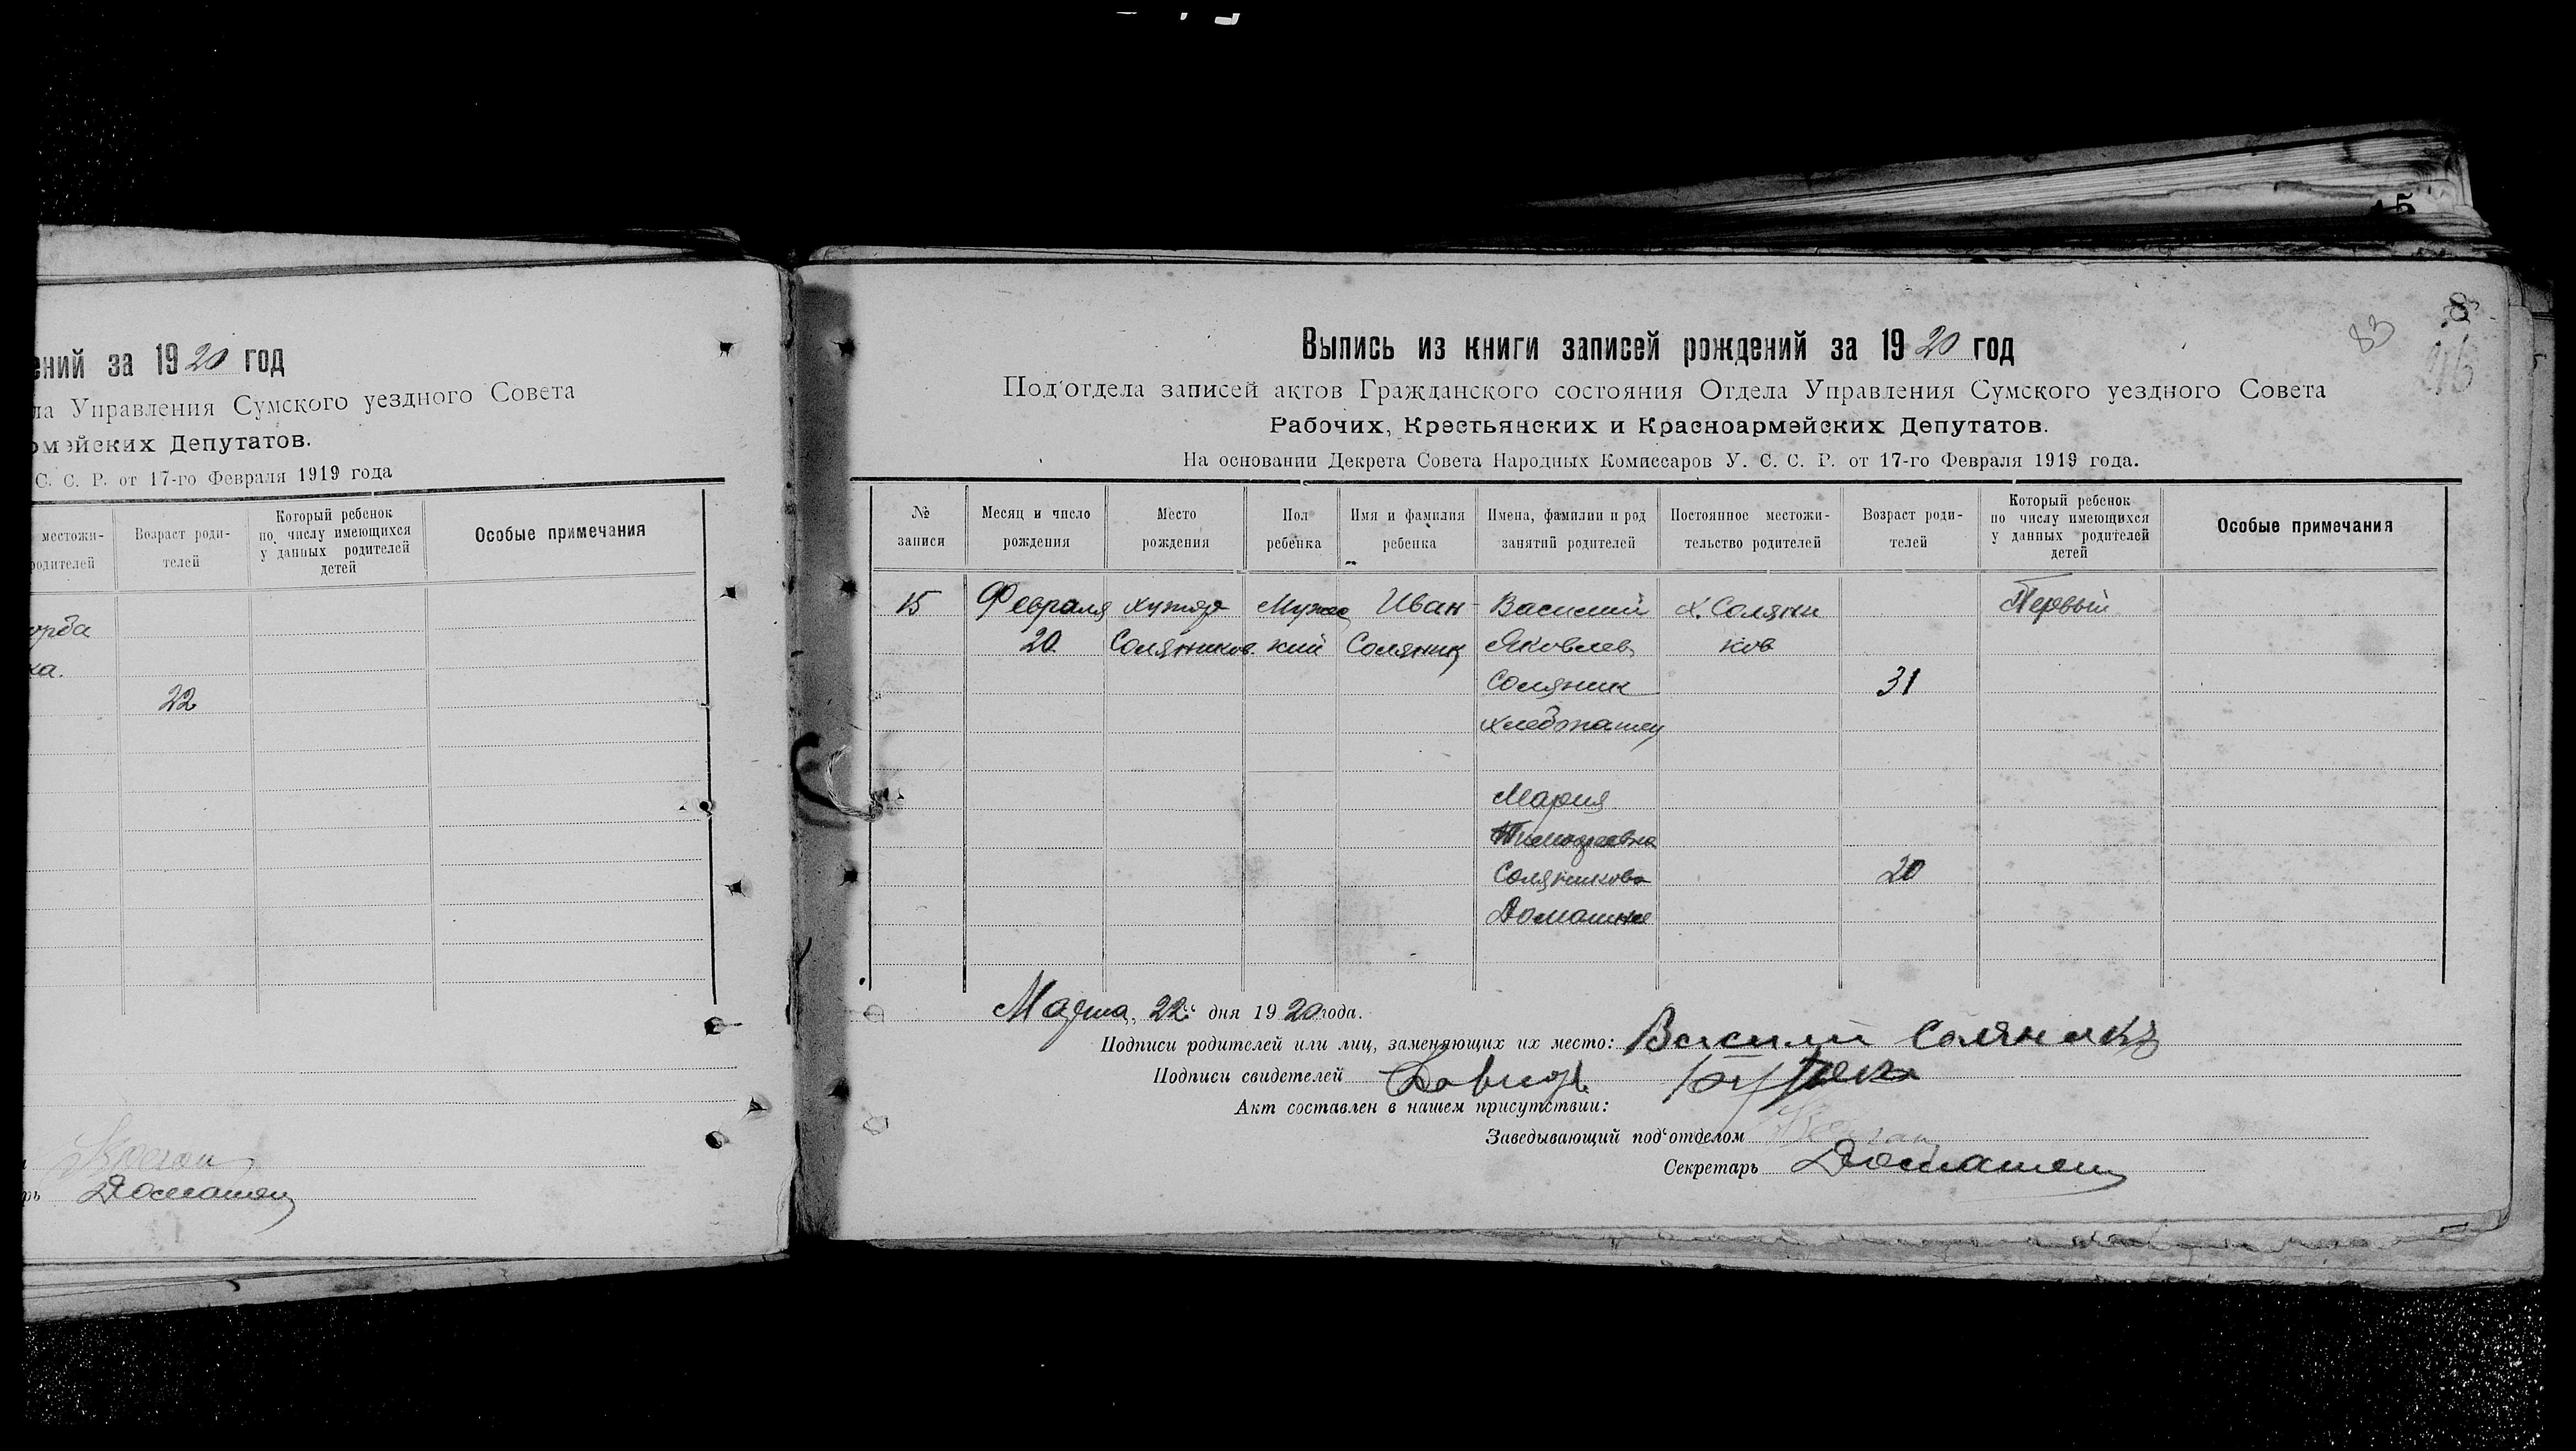 ений за 1920 год
ла Управления Сумского уездного Совета
омейских Депутатов.
С. С. Р. от 17-го Февраля 1919 года
местожи-
родителей
Возраст роди-
телей
Который ребенок
по числу имеющихся
у данных родителей
детей
Особые примечания
ка.
22
Домашец
83
8
Выпись из книги записей рождений за 1920 год
Под'отдела записей актов Гражданского состояния Отдела Управления Сумского уездного Совета
Рабочих, Крестьянских и Красноармейских Депутатов.
На основании Декрета Совета Народных Комиссаров У. С. С. Р. от 17-го Февраля 1919 года.
№
записи
Месяц и число
рождения
Место
рождения
Пол
ребенка
Имя и фамилия
ребенка
Имена, фамилии и род
занятий родителей
Постоянное местожи-
тельство родителей
Возраст роди-
телей
Который ребенок
по числу имеющихся
у данных родителей
детей
Особые примечания
15
Февраля
20
хутор
Соляников
Мужс
кий
Иван
Соляник
Василий
Яковлев
Соляник
хлебопашец
Мария
Тимофеевна
Соляникова
Домашнее
х. Соляни
ков
31
20
Первый
Марта, 22 дня 1920 года.
Подписи родителей или лиц, заменяющих их место: Василий Соляникъ
Подписи свидетелей Давидъ
Акт составлен в нашем присутствии:
Заведывающий под'отделом
Секретарь Домашец